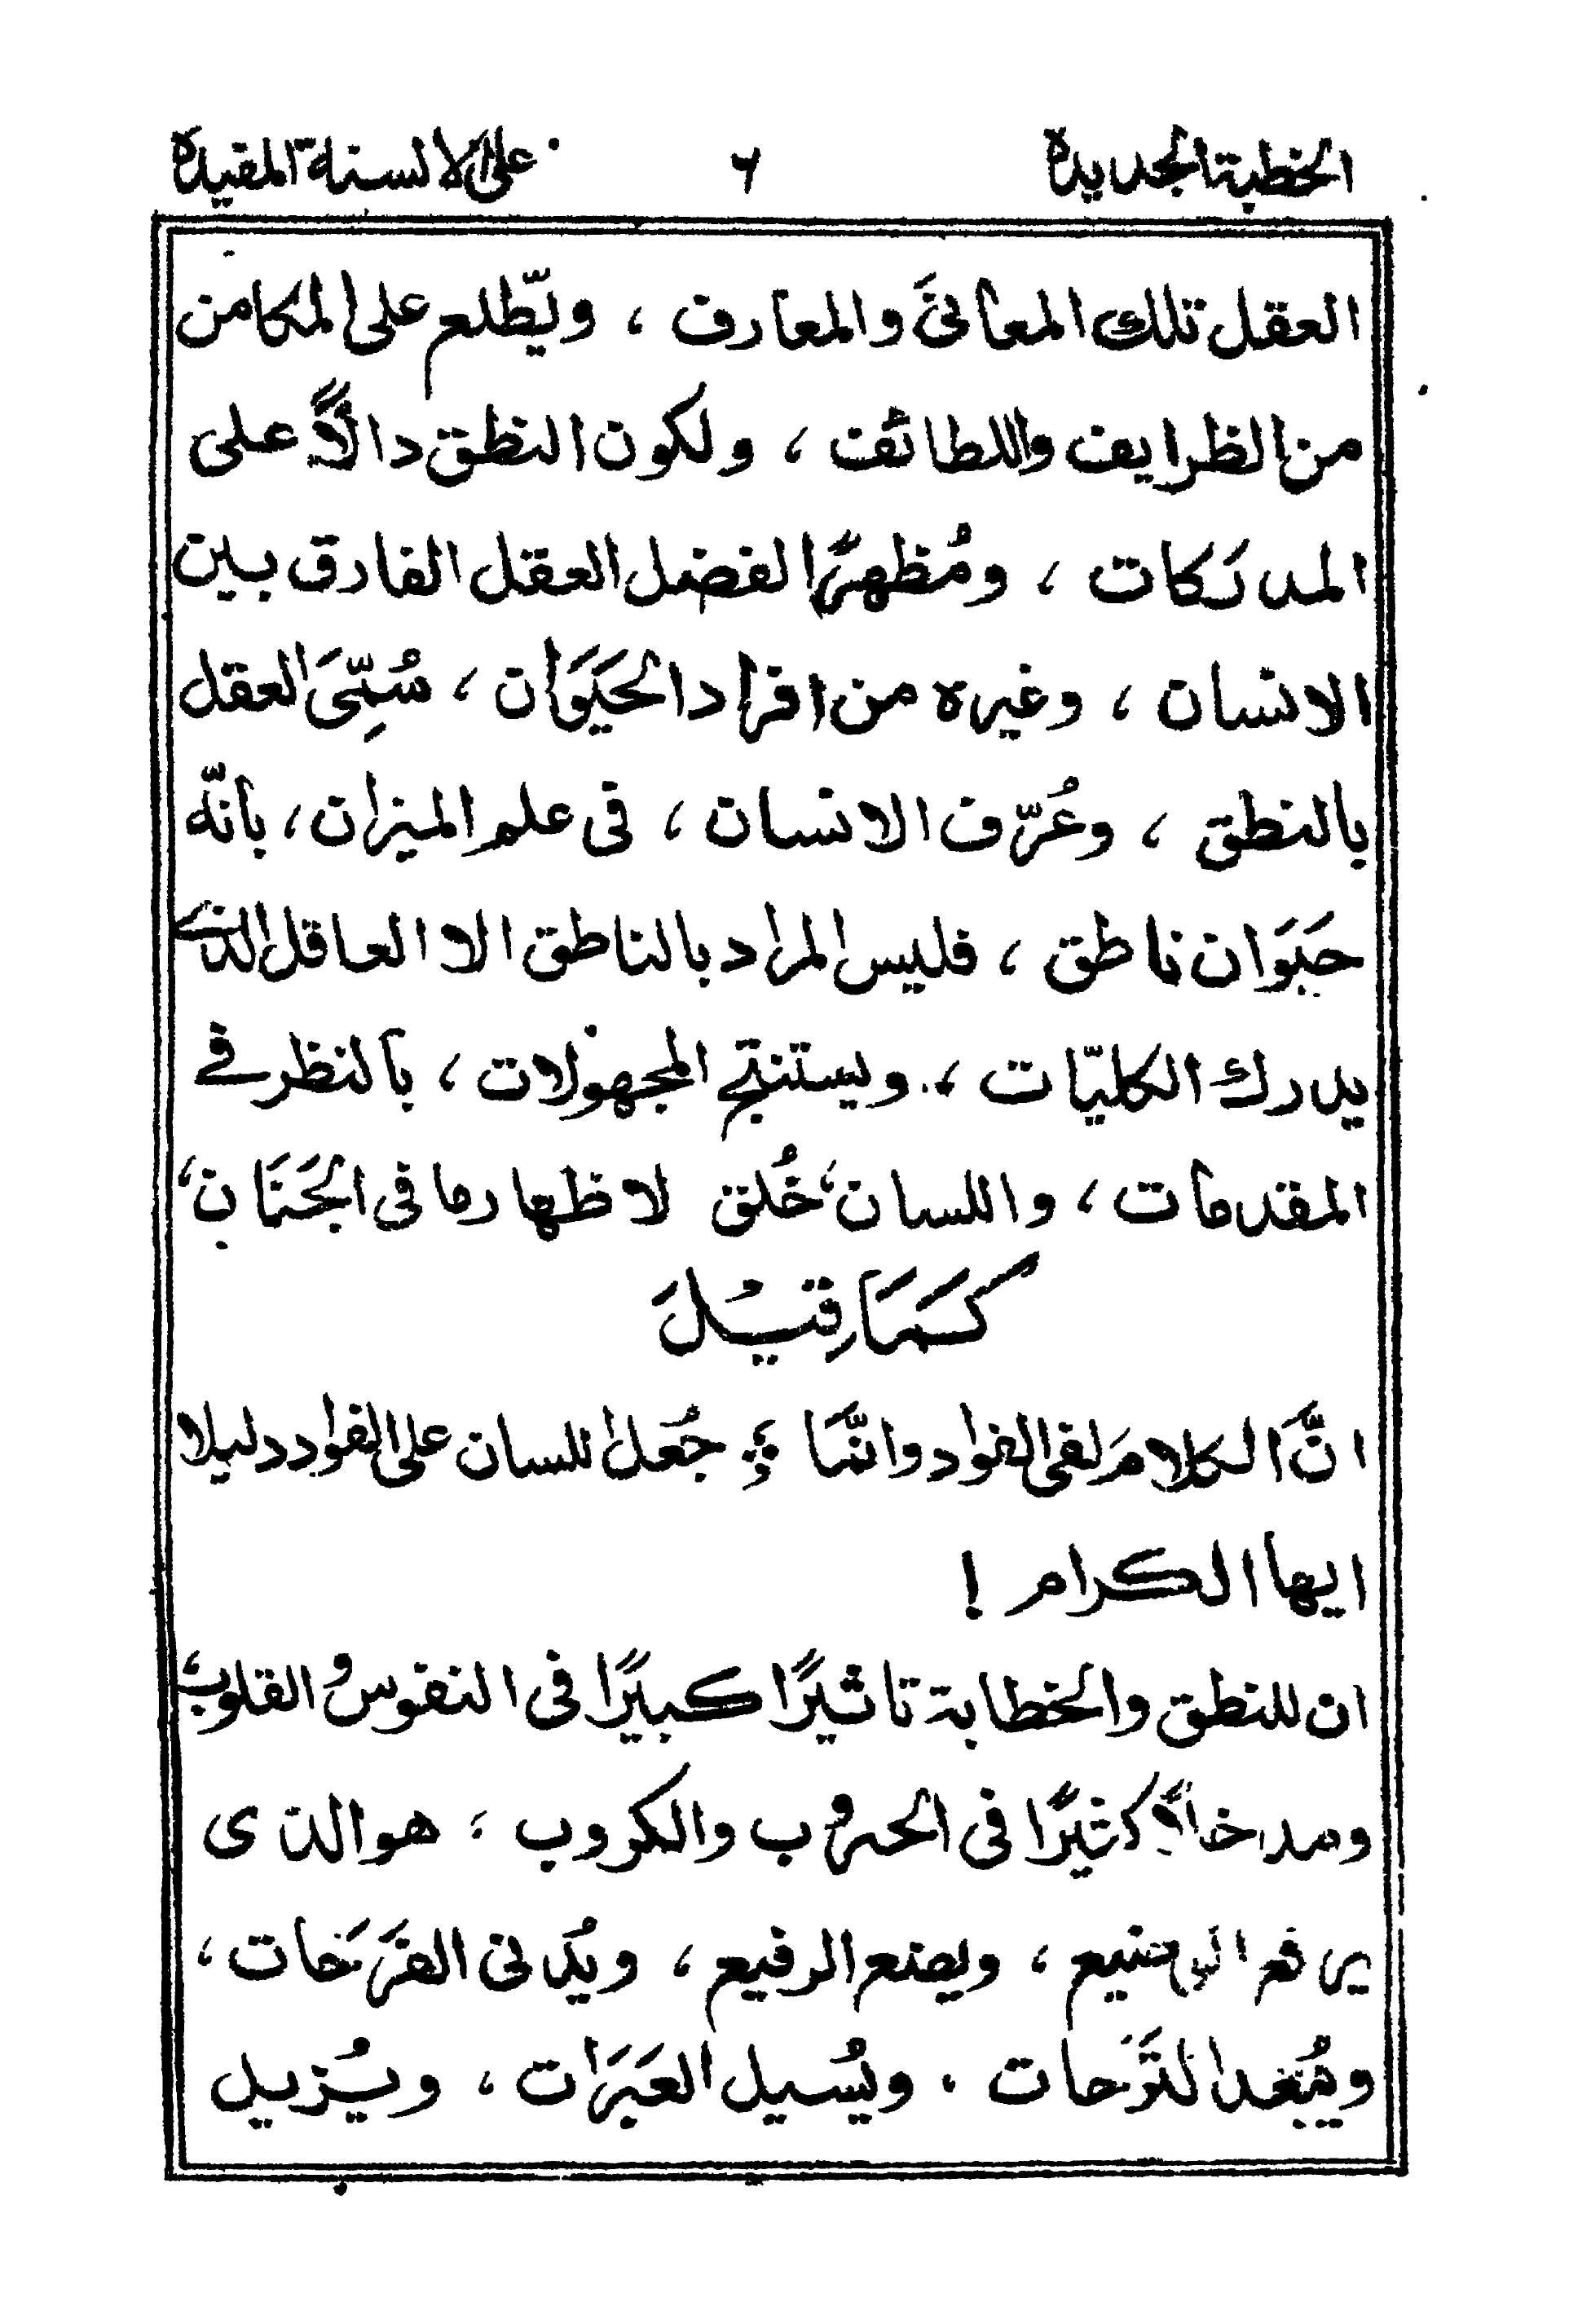 الخطبة الجديدة ٦ على الالسنة المفيدة
العقل تلك المعانیَ والمعارف ، ويّطلع على المكامن
من الظرايف واللطائف ، ولكون النطق دالاًّ على
المدرَكات ، ومُظهِرًا لفضل العقل الفارق بين
الانسان ، وغيره من افراد الحَيَوَان ، سُمِّىَ العقل
بالنطق ، وعُرّف الانسان ، فى علم الميزان ، بانّه
حَيَوَان ناطق ، فليس المراد بالناطق الا العاقل الذى
يدرك الكليّات ، ويستنتج المجهولات ، بالنظر فے
المقدمات ، واللسان ، خُلق لاظهار ما فى الجَنَان ،
كَمَا قِيْلَ
انَّ الكلامَ لفى الفواد وانَّمَا ؞ جُعل اللسان على الفواد دليلا
ايها الكرام !
ان للنطق والخطابة تاثيرًا كبيرًا فى النفوس والقلوب ،
ومدخلاً كثيرًا فى الحروب والكروب ، هو الذى
يرفع الوضيع ، ويضع الرفيع ، ويُدنى الفَرَحَات ،
ويُبْعد التَرَحات . ويُسيل العَبَرَات ، ويُزيل